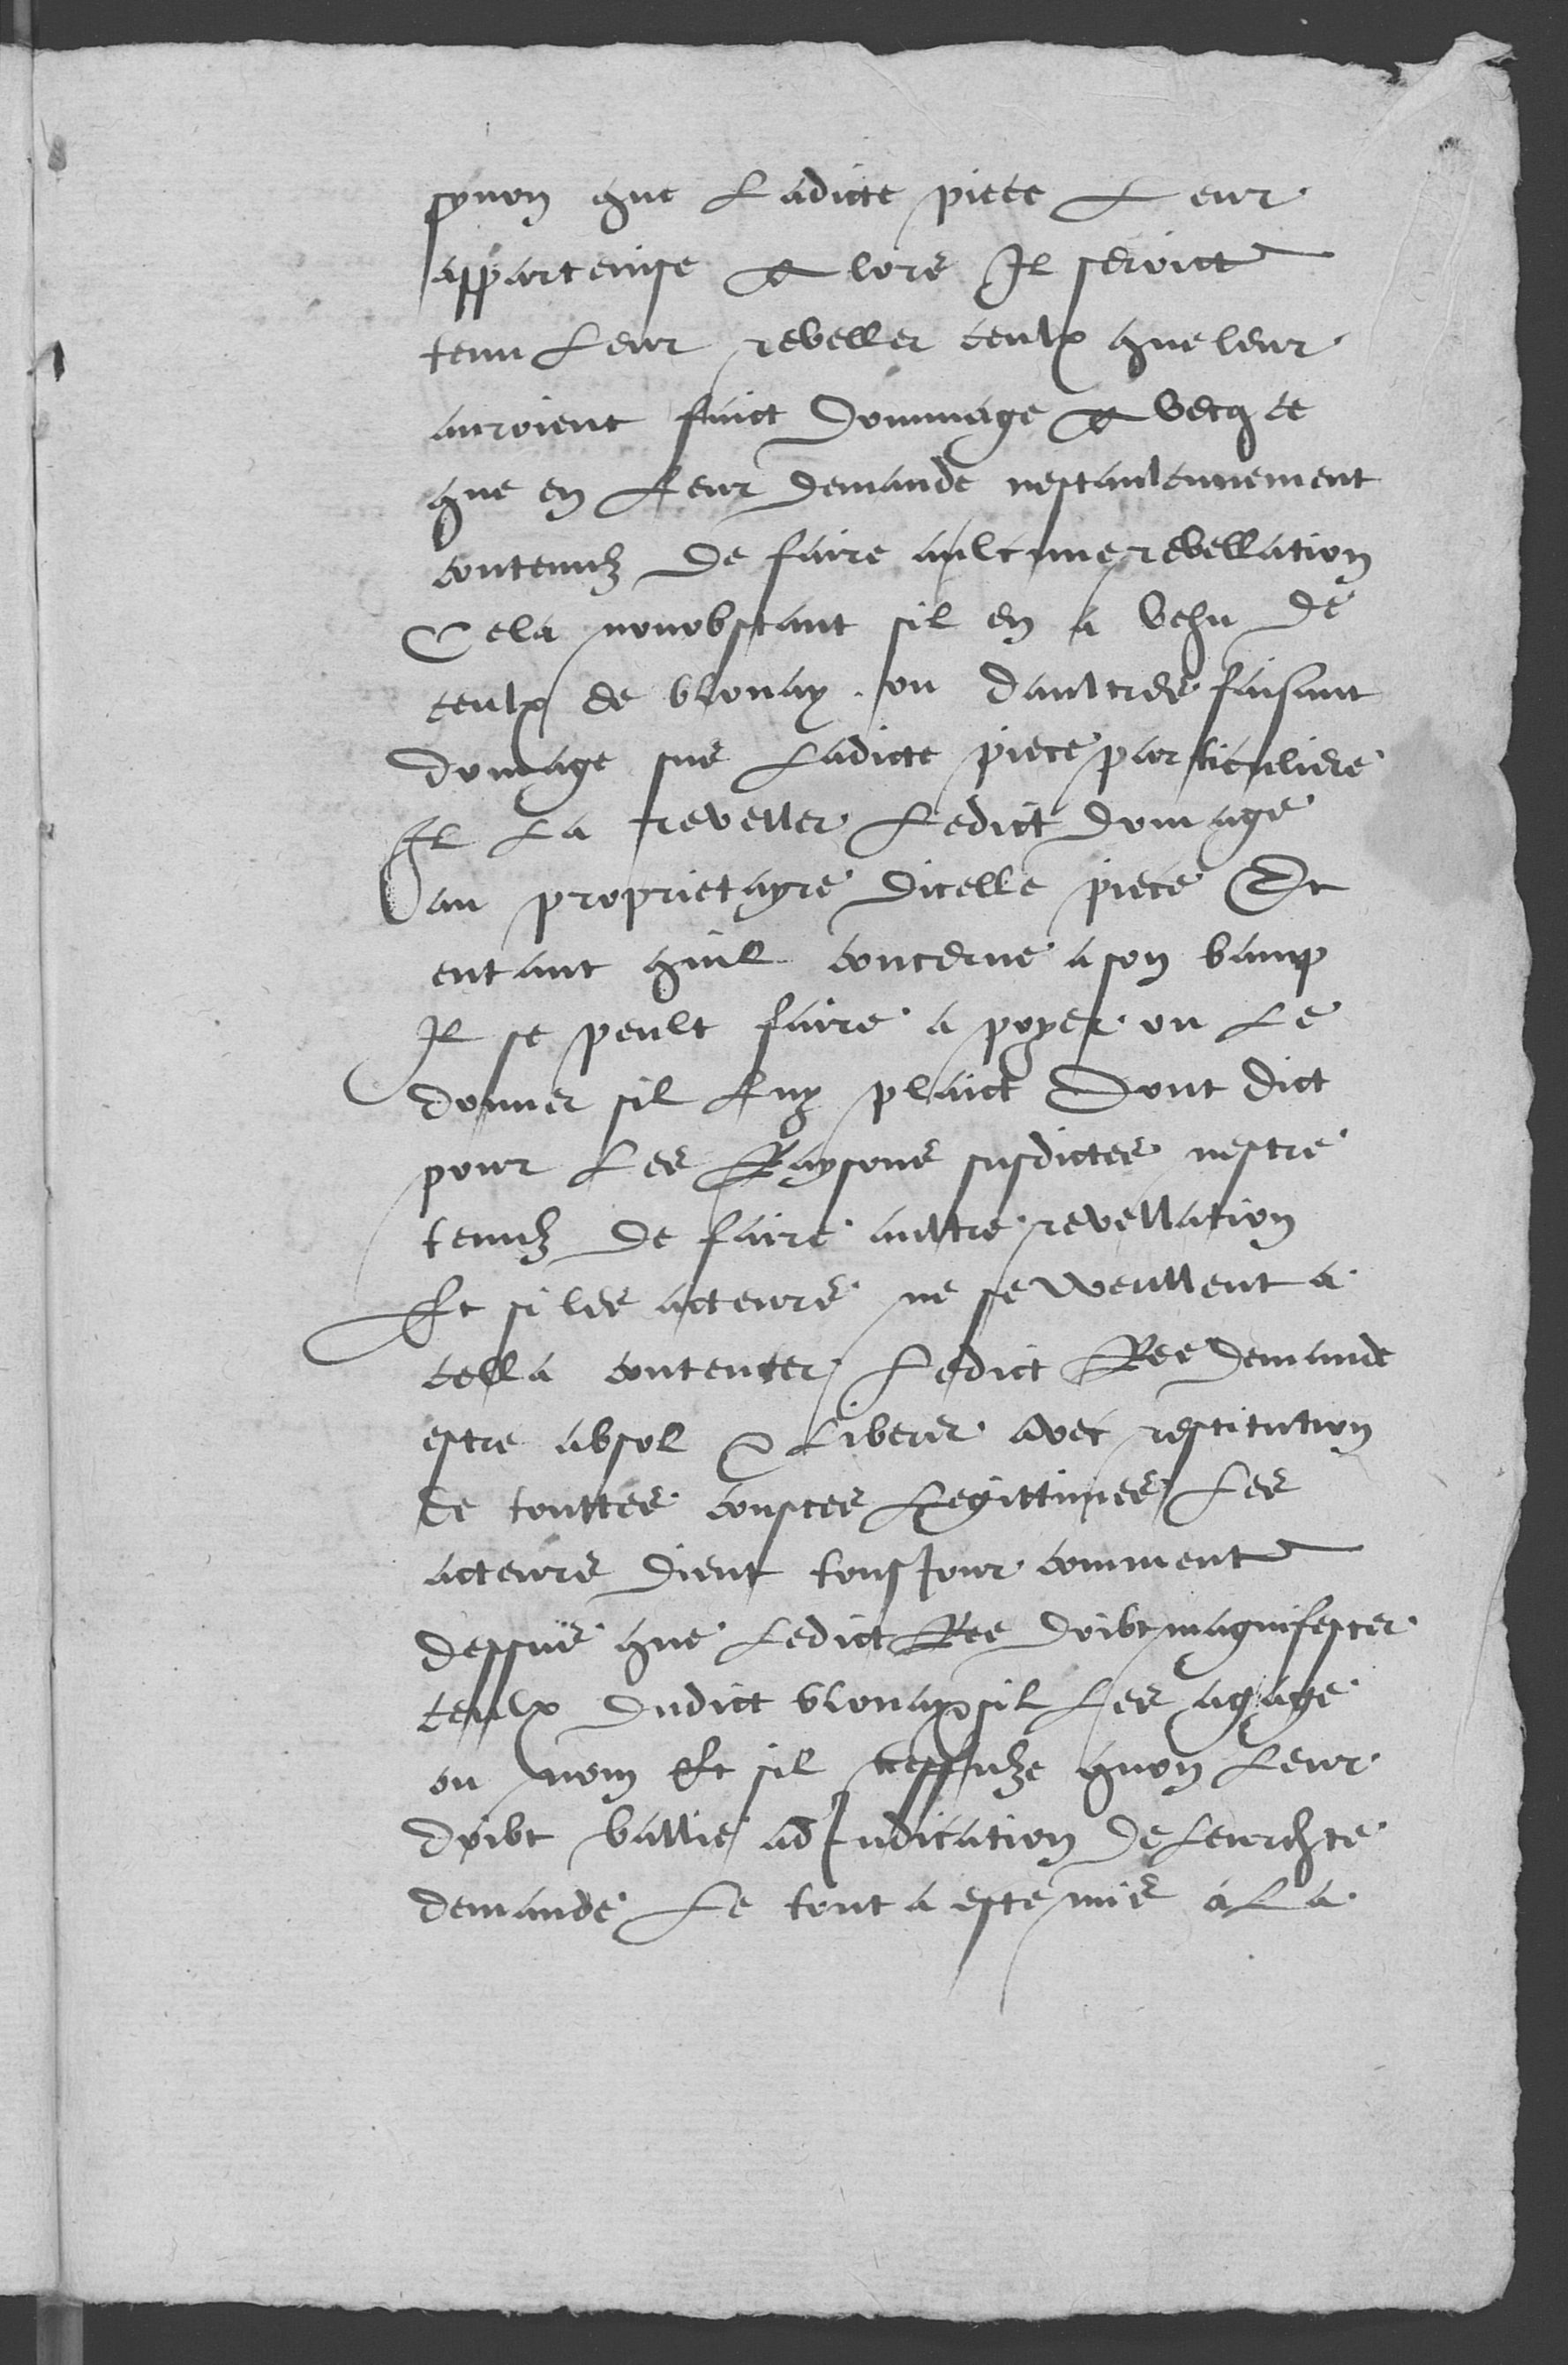 synon que Ladicte piece Leur
appartenise A lors Il seroict
tenu Leur reveller ceulx que leur
auroient faict Dommage A vecq ce
que en Leur Demande nest aulcunement
contenuz De faire aulcune revellation
Cela nonobstant sil en a vehu De
ceulx de blonay ou Daultres faisant
Domage sus Ladicte piece particuliere
Il La reveller Ledict Domage
au proprietayre Dicelle piece Et
entant quil concerne a son bamp
Il se peult faire a poyer ou Le
Donner sil Luy plaict Dont dict
pour Les Raysons susdictes nestre
tenuz De faire aultre revellation
Et si les acteurs ne se veullent a
cella contenter Ledict Ree Demande
estre absol & Liberer avec restitution
De touttes coustes Legittimes Les
acteurs Dient tousjour comment
Dessus que Ledict Ree Doibt magnifester
ceulx Dudict blonay sil Les a gage
ou nom Et sil reffuze quon Leur
Doibt ballie adJudication De Leur
Demande Le tout a este mis a La